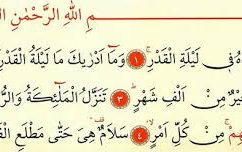 مِ اللّٰهِ الرَّحْمٰنِ ال
هُ فٖى لَيْلَةِ الْقَدْرِۚ ﴿١﴾ وَمَٓا اَدْرٰيكَ مَا لَيْلَةُ الْقَدْرِ
يْرٌ مِنْ اَلْفِ شَهْرٍۜ ﴿٣﴾ تَنَزَّلُ الْمَلٰٓئِكَةُ وَالرُّ
هِمْۚ مِنْ كُلِّ اَمْرٍۙ ﴿٤﴾ سَلَامٌ۠ هِىَ حَتّٰى مَطْلَعِ الْفَ